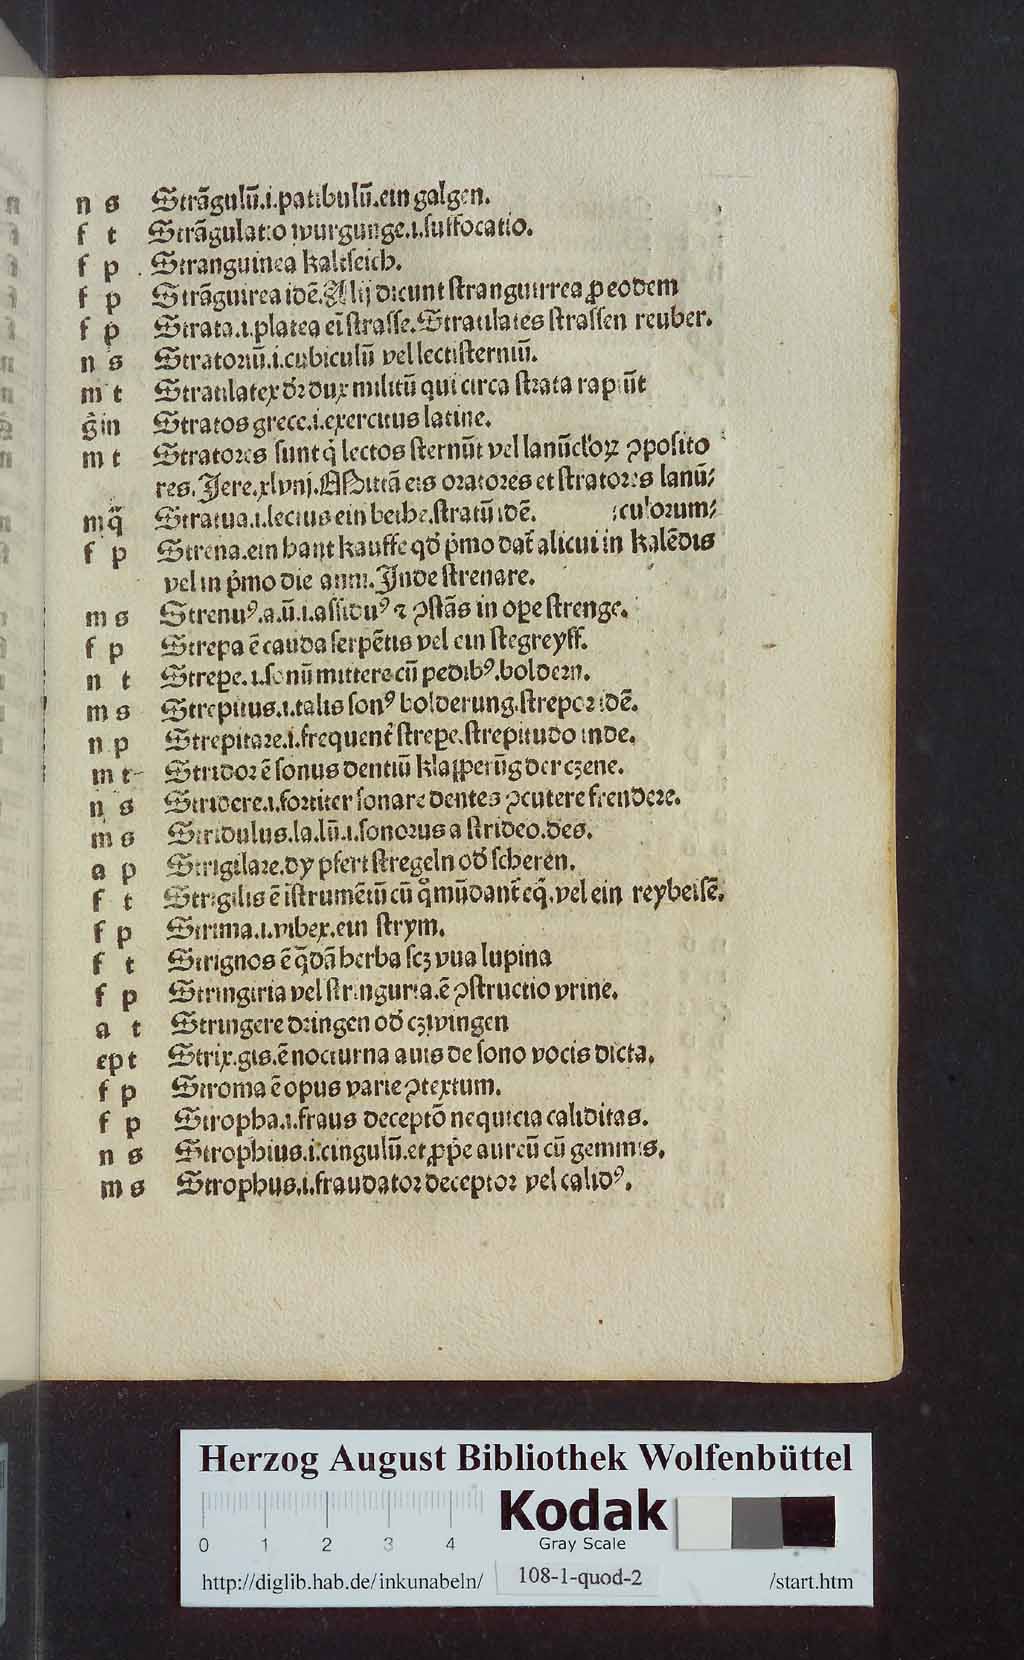 n s Strãgulũ.i.patibulũ.ein galgen.
f t Strãgulatio wurgunge.i.suffocatio.
f p Stranguinea kaltseich.
f p Strãguirea idẽ. Alij dicunt stranguirrea ꝓ eodem
f p Strata.i.platea eĩ strasse. Stratilates strassen reuber.
n s Stratoriũ.i.cubiculũ vel lectisterniũ.
m t Stratilatex dr̃ dux militũ qui circa strata rapiũt
g̃ in Stratos grece.i.exercitus latine.
m t Stratores sunt q̃ lectos sternũt vel lanũcloꝝ ꝯposito
res. Jere.xlviij. Mittã eis oratores et stratores lanũ⸗
m q̃ Stratua.i.lectus ein bethe.stratũ idẽ. :culorum⸗
f p Strena.ein hant kauffe qđ p̃mo dat̃ alicui in kalẽdis
vel in p̃mo die anni. Inde strenare.
m s Strenuꝰ.a.ũ.i.assiduꝰ ⁊ ꝯstãs in oꝑe strenge.
f p Strepa ẽ cauda serpẽtis vel ein stegreyff.
n t Streꝑe.i.sonũ mittere cũ pedibꝰ.boldern.
m s Strepitus.i.talis sonꝰ bolderung.strepor idẽ.
n p Strepitare.i.frequent̃ streꝑe.strepitudo inde.
m t Stridor ẽ sonus dentiũ klapperũg der czene.
n s Stridere.i.fortiter sonare dentes ꝯcutere frendere.
m s Stridulus.la.lũ.i.sonorus a strideo.des.
a p Strigilare.dy pfert stregeln ođ scheren.
f t Strigilis ẽ ĩstrumẽtũ cũ q̊ mũdant̃ eq̃.vel ein reybeisẽ.
f p Strima.i.vibex.ein strym.
f t Strignos ẽ q̃dã herba scꝫ vua lupina
f p Stringiria vel stringuria.ẽ ꝯstructio vrine.
a t Stringere dringen ođ czwingen
ep t Strix.gis.ẽ nocturna auis de sono vocis dicta.
f p Stroma ẽ opus varie ꝯtextum.
f p Stropha.i.fraus deceptõ nequicia caliditas.
n s Strophius.i.cingulũ.et ꝓp̃e aureũ cũ gemmis.
m s Strophus.i.fraudator deceptor vel calidꝰ.
Herzog August Bibliothek Wolfenbüttel
Kodak
Gray Scale
0 1 2 3 4
http://diglib.hab.de/inkunabeln/ 108-1-quod-2 /start.htm